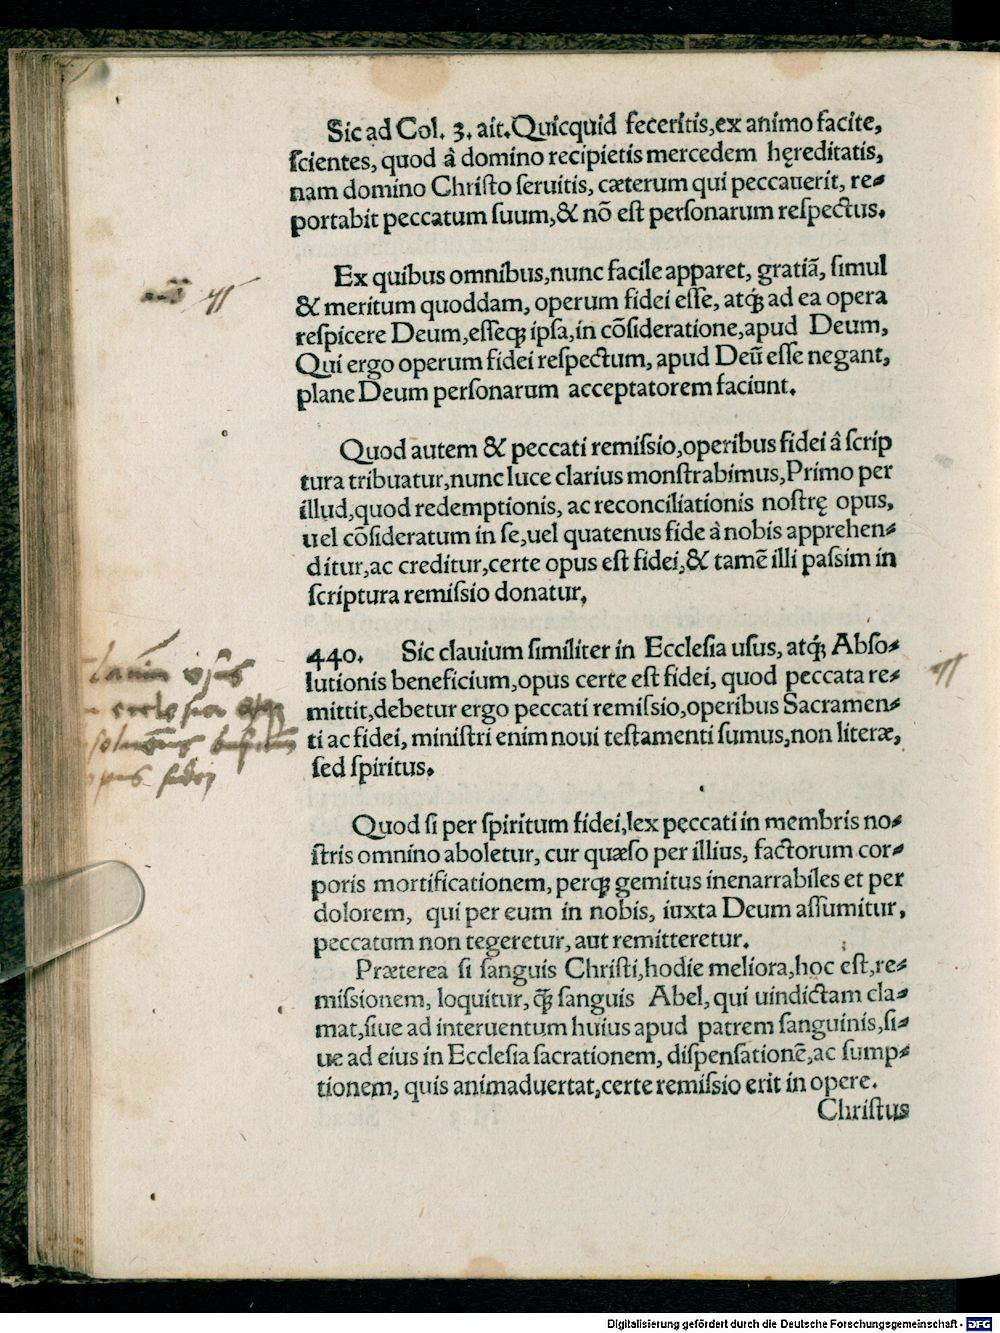 Sic ad Col. 3. ait. Quicquid feceritis, ex animo facite,
ſcientes, quod à domino recipietis mercedem hęreditatis,
nam domino Chriſto ſeruitis, cæterum qui peccauerit, re⸗
portabit peccatum ſuum, & nõ eſt perſonarum reſpectus.
Ex quibus omnibus, nunc facile apparet, gratiã, ſimul
& meritum quoddam, operum fidei eſſe, atq; ad ea opera
reſpicere Deum, eſſeq; ipſa, in cõſideratione, apud Deum,
Qui ergo operum fidei reſpectum, apud Deũ eſſe negant,
plane Deum perſonarum acceptatorem faciunt.
Quod autem & peccati remiſsio, operibus fidei â ſcrip
tura tribuatur, nunc luce clarius monſtrabimus, Primo per
illud, quod redemptionis, ac reconciliationis noſtrę opus,
uel cõſideratum in ſe, uel quatenus fide à nobis apprehen⸗
ditur, ac creditur, certe opus eſt fidei, & tamẽ illi paſsim in
ſcriptura remiſsio donatur,
440. Sic clauium ſimiliter in Eccleſia uſus, atq; Abſo⸗
lutionis beneficium, opus certe eſt fidei, quod peccata re⸗
mittit, debetur ergo peccati remiſsio, operibus Sacramen⸗
ti ac fidei, miniſtri enim noui teſtamenti ſumus, non literæ,
ſed ſpiritus.
Quod ſi per ſpiritum fidei, lex peccati in membris no⸗
ſtris omnino aboletur, cur quæſo per illius, factorum cor⸗
poris mortificationem, perq; gemitus inenarrabiles et per
dolorem, qui per eum in nobis, iuxta Deum aſſumitur,
peccatum non tegeretur, aut remitteretur.
Præterea ſi ſanguis Chriſti, hodie meliora, hoc eſt, re⸗
miſsionem, loquitur, q̃ ſanguis Abel, qui uindictam cla⸗
mat, ſiue ad interuentum huius apud patrem ſanguinis, ſi⸗
ue ad eius in Eccleſia ſacrationem, diſpenſationẽ, ac ſump⸗
tionem, quis animaduertat, certe remiſsio erit in opere.
Chriſtus
uſus
opus fidei
Digitalisierung gefördert durch die Deutsche Forschungsgemeinschaft - DFG